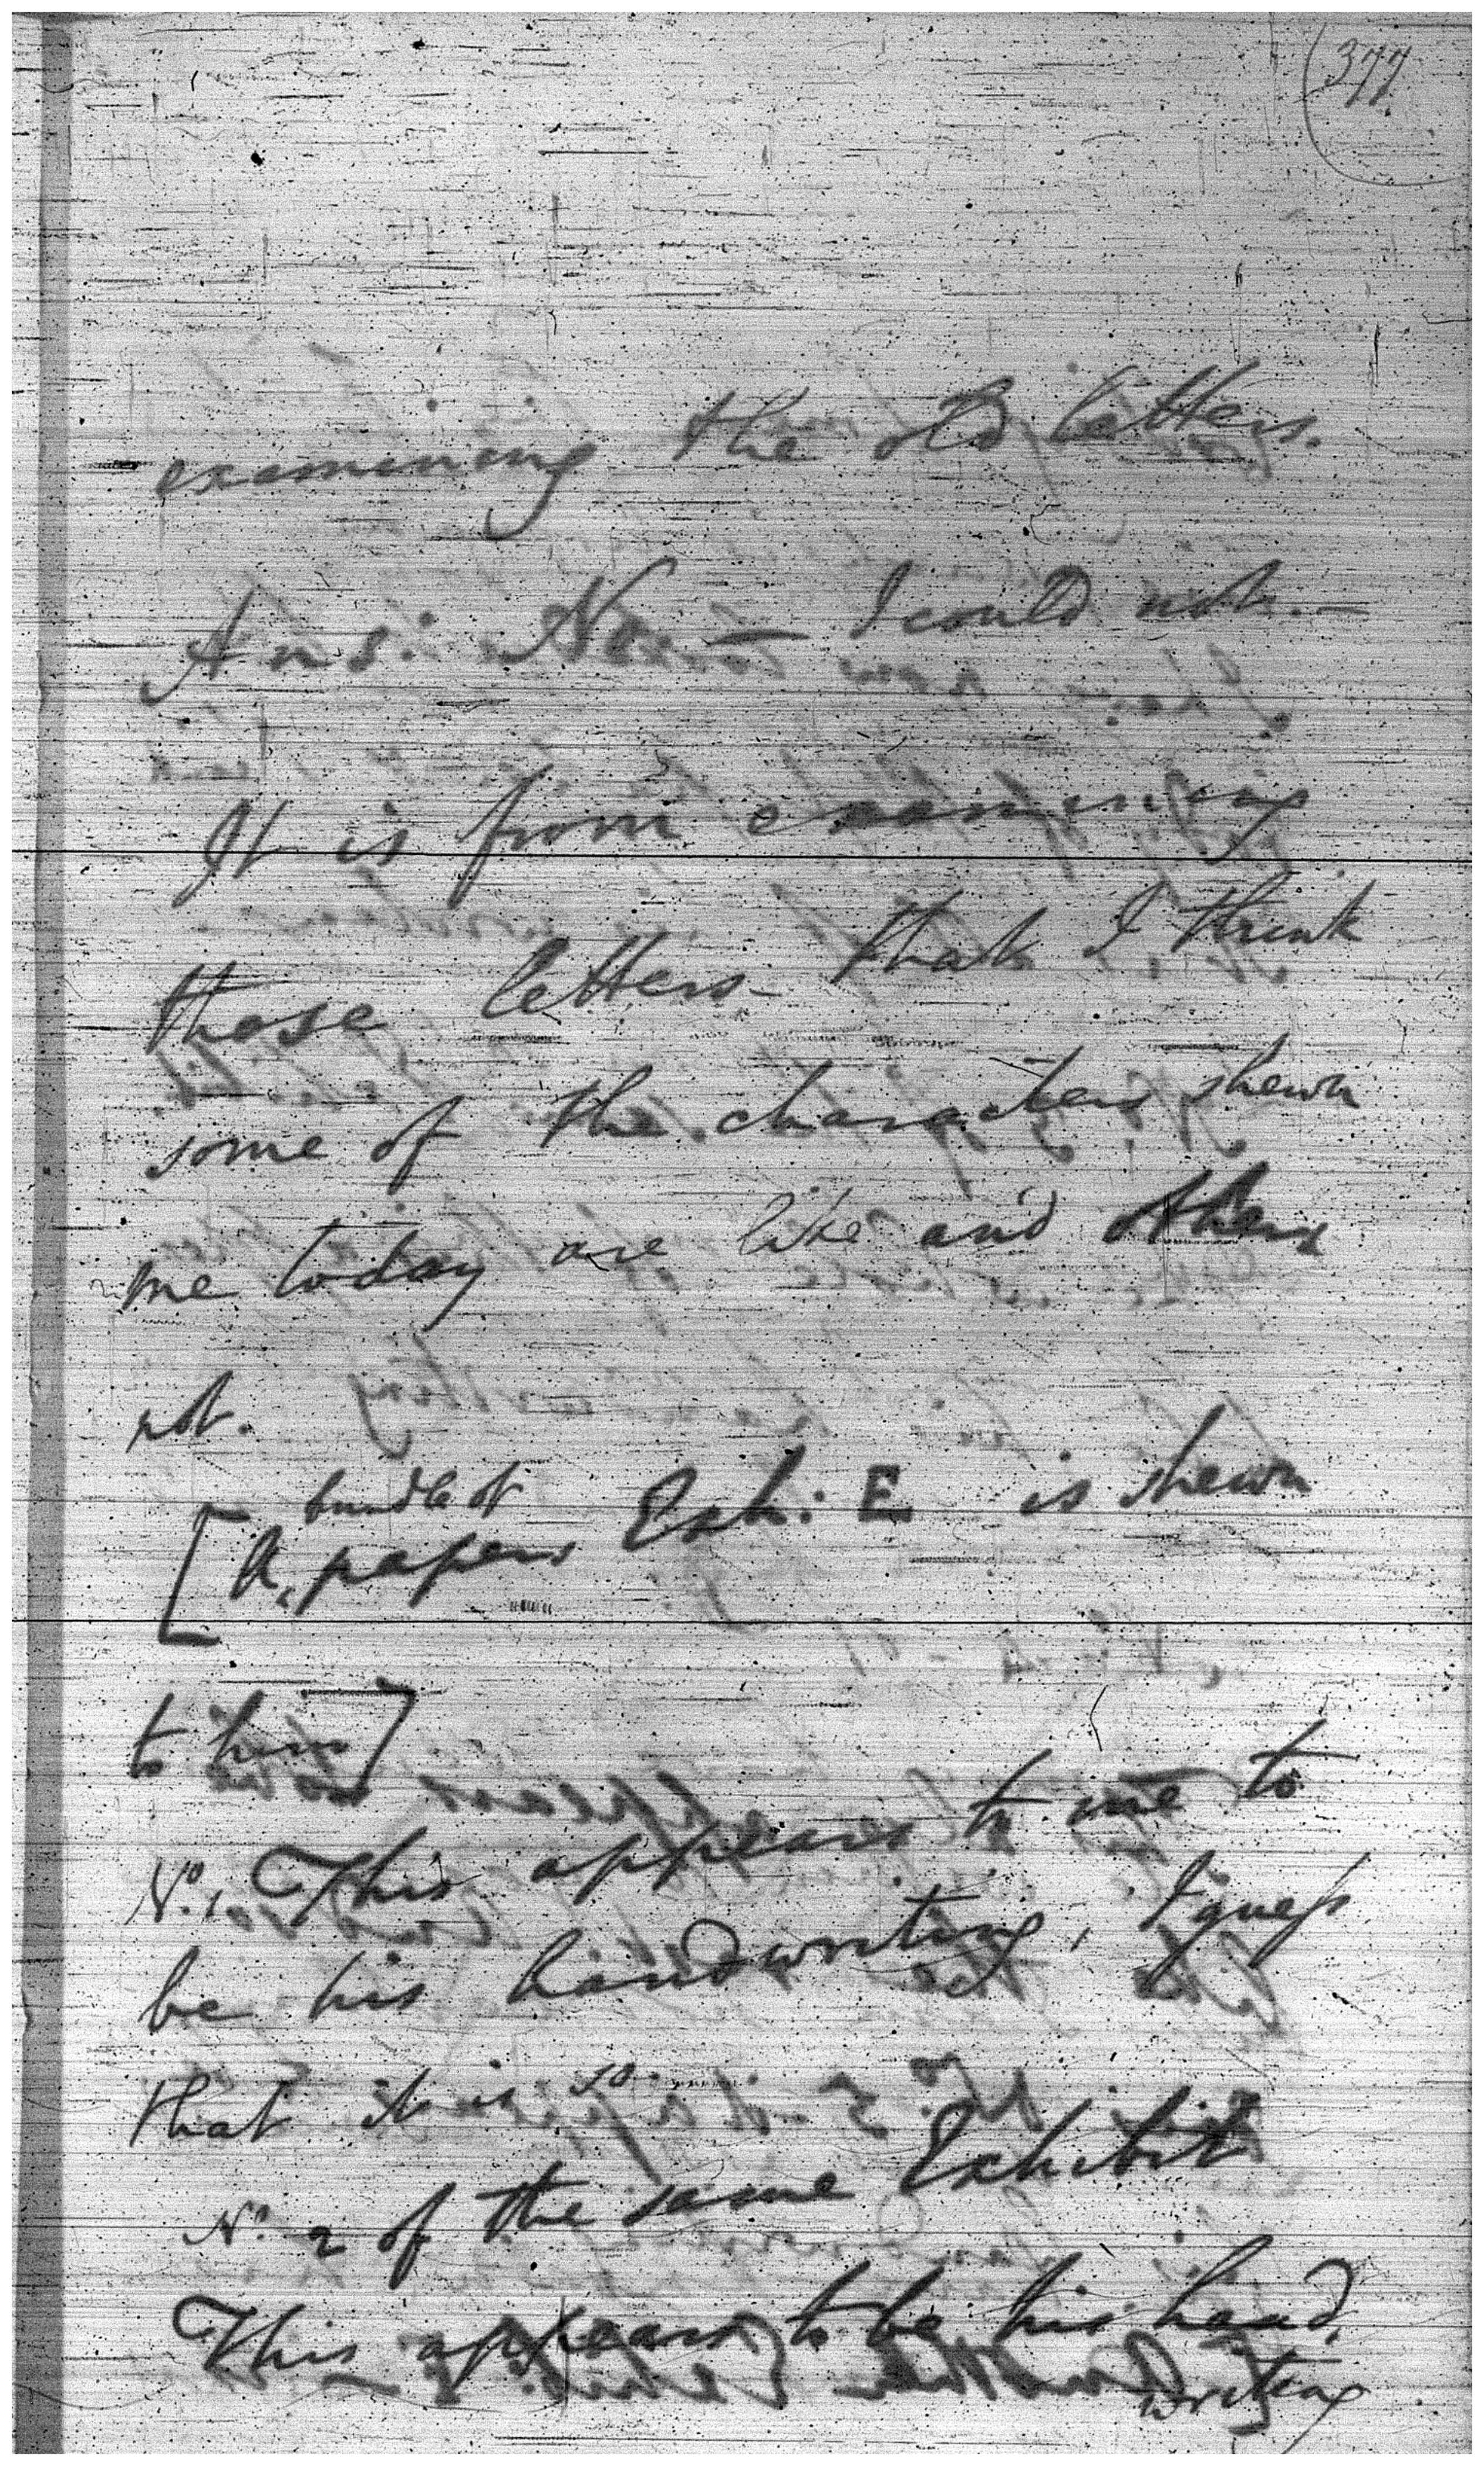 377
examining the old letters.
Ans: No. — I could not. —
It is from examining
those letters that I think
some of the characters shewn
me today are like and others
not.
bundle of
[A papers Exh: E is shewn
to him]
No. 1. This appears to me to
be his handwriting, I guess
that it is so.
No. 2 of the same Exhibit
This appears to be his hand,
writing